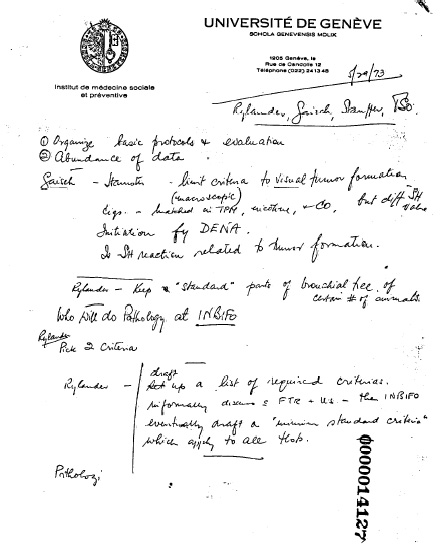 UNIVERSITÉ DE GENÈVE
SCHOLA GENEVENSIS MDLIX
1205 Genève, le
Rue de Candolle 12
Téléphone (022) 24 13 45
5/29/73
Institut de médecine sociale
et préventive
Rylander, Stauffer,
① Organize basic protocols & evaluation
② Abundance of data
- limit criteria to visual tumor formation
(macroscopic)
Cigs. - matched in TPM, nicotine, & CO, but diff SH value
Initiation by DENA.
Is SH reaction related to tumor formation.
Rylander - Keep "standard" parts of bronchial tree of
certain # of animals.
Who will do Pathology at INBIFO
Rylander
Pick 2 Criteria
draft
Rylander - set up a list of required criterias.
informally discuss c FTR + US. - then INBIFO
eventually draft a "minimum standard criteria"
which apply to all
Pathology
0000014127